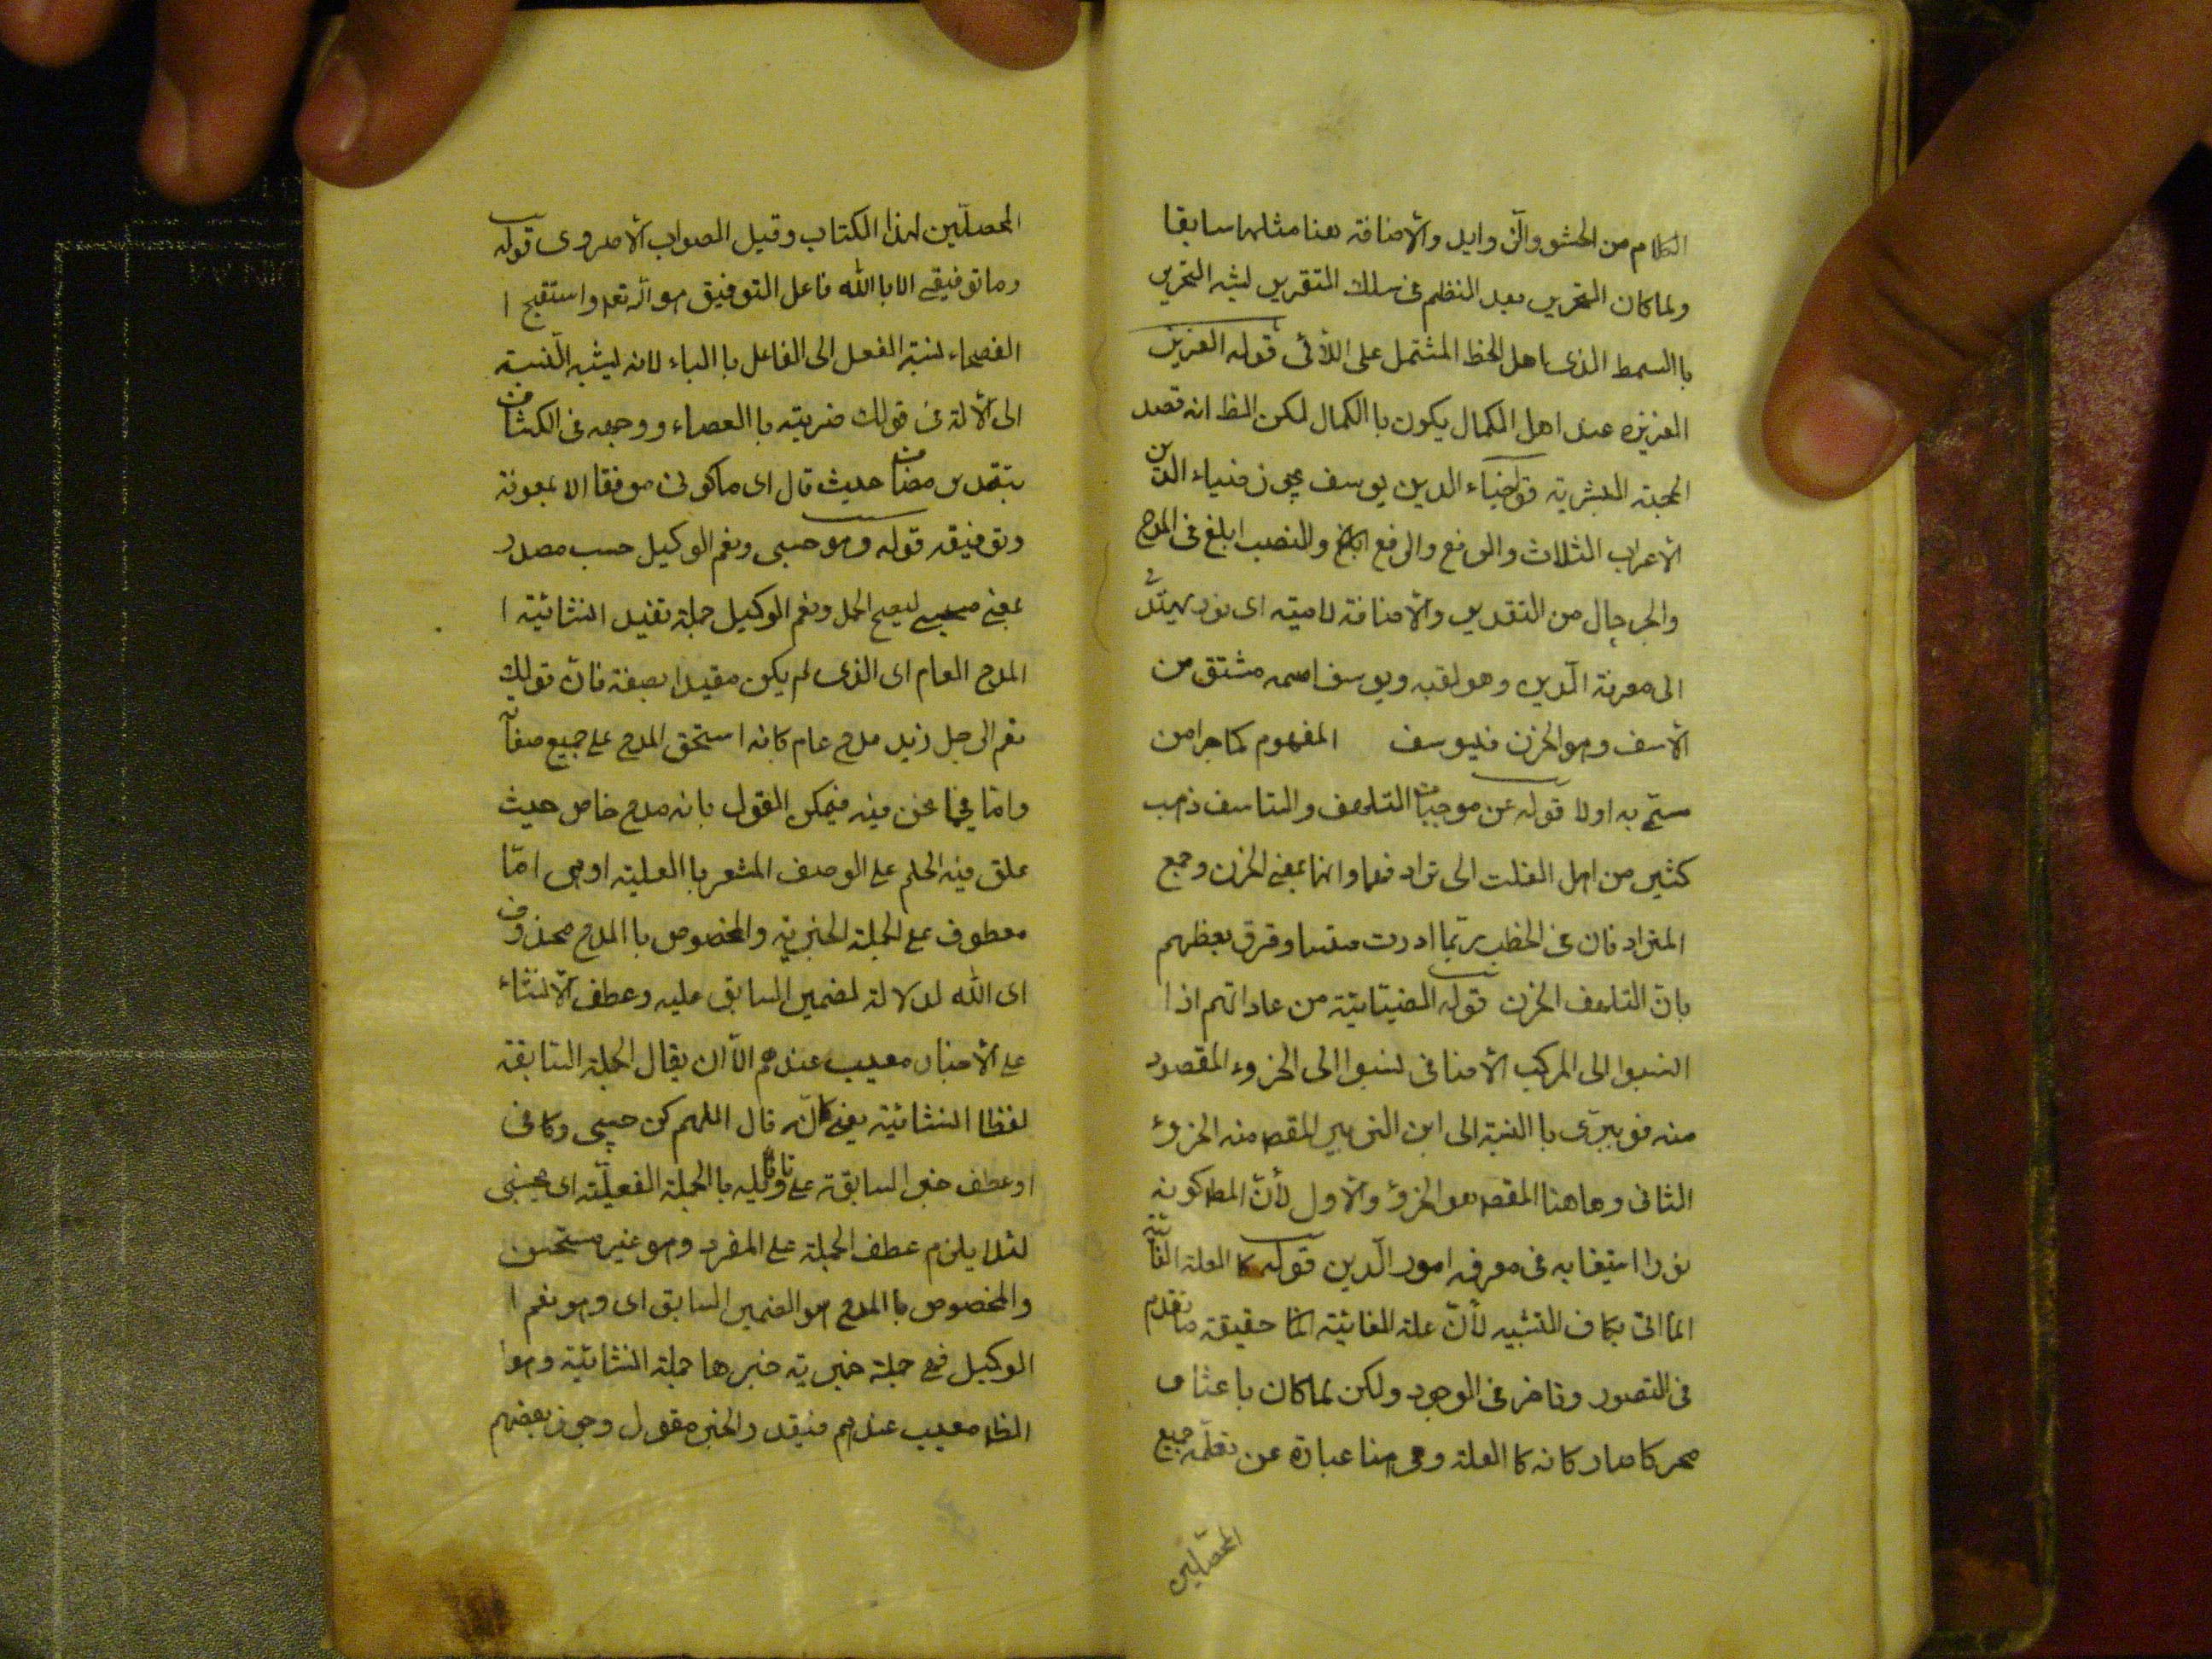 الكلام من الحشو والزوايد والأضافة هنا مثلها سابقا
ولما كان التحرير بعد النظم فى سلك التقرير ليشبه التحرير
با السمط الذى باهل الحظ المشتمل على اللألئى قوله العزيز
العزيزه عند اهل الكمال يكون با الكمال لكن الظ انه قصد
المحبته البشرية قوله ضياء الدين يوسف يجوز فى ضياء الدين
الأعراب الثلاث والرفع والرفع والنصب ابلغ فى المدح
والجر خال من التقدير والأضافة لامية اى نور يهتدى
الى معرفة الدين وهو لقبه ويوسف اسمه مشتق من
الأسف وهو الحزن فليوسف المفهوم كما جرا من
به اولا قوله عن موجبات التلهف والتاسف ذهب
كثير من اهل الغلت الى ترادفهما وانهما بمعنى الحزن وجمع
المترادفان فى الخطب ربما ادرت وفرق بعظهم
بان التلهف الحزن قوله الضيائية من عاداتهم اذا
النسبوا الى المركب الأضافى لنسبوا الى الجزء المقصود
منه فو بيرى با النسبة الى ابن الزبير المقصد منه الجزؤ
الثانى وهاهنا المقصد هو الجزؤ والأول لأنّ المط كونه
نورا به فى معرفه امور الدين قوله كا العلة الغائية
انما اتى بكاف التشبيه لأنّ علة الغائية انما حقيقة ما تقدم
فى التصور وتاخر فى الوجود ولكن لما كان باعثا و
محركا صار كانه كا العلة وهى هنا عبارة عن تعلّمه جميع
المحصّلين
المحصلّين لهذا الكتاب وقيل الصواب الأصروى قوله
وما توفيقى الا با الله فاعل التوفيق هو الله تعه واستقبح ا
الفصحاء لنسبة الفعل الى الفاعل با الباء لانه ليشبه النسبة
الى الألة فى قولك ضربته با العصاء ووجهه فى الكشاف
بتقدير مضاف حيث قال اى ما كونى موفقا الا بمعونة
وتوفيقه قوله وهو حسبى ونعم الوكيل حسب مصدر
بمعنى محسبى ليصح الحمل ونعم الوكيل جملة تفيد النشائية ا
المدح العام اى الذى لم يكن مقيدا بصفة فانّ قولك
نعم الرجل زيد مدح عام كانه استحق المدح على جميع صفاته
وامّا فيما نحن فيه فيمكن القول بانه مدح خاص حيث
علق فيه الحلم على الوصف المشعر با العلية او هى امّا
معطوف على الجملة الخبرية والمخصوص با المدح محذوف
اى الله لدلالة لضمير السابق عليه وعطف الأنشاء
على الأخبار معيب عندهم الّا ان يقال الجملة السابقة
لفظا النشائية يعنى كانّه قال اللهم كن حسبى وكافى
او عطف خبر السابقة على تاويله با الجملة الفعليّة اى يحسبنى
لئلا يلزم عطف الجملة على المفرد وهو غير مستحسن
والمخصوص با المدح هو الضمير السابق اى وهو نعم ا
الوكيل فهى جملة خبرية خبرها جملة النشائية وهوا
الظ معيب عندهم فيقدر والخبر مقول وجوز بعضهم